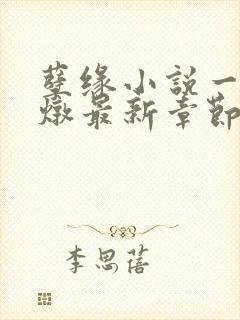 孽缘小说一
燉最新章節
李思蓓